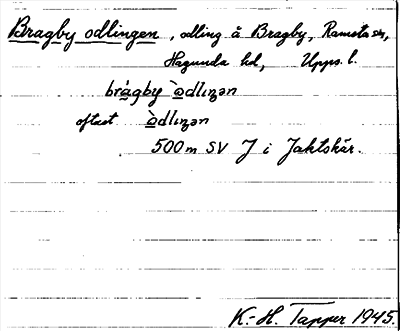 Bragby odlingen, odling å Bragby, Ramsta sn,
Hagunda hd, Upps. l.
brågby ̀odlıŋən
oftast ̀odlıŋən
500 m SV J i Jaktskär.
K.-H. Tapper 1945.